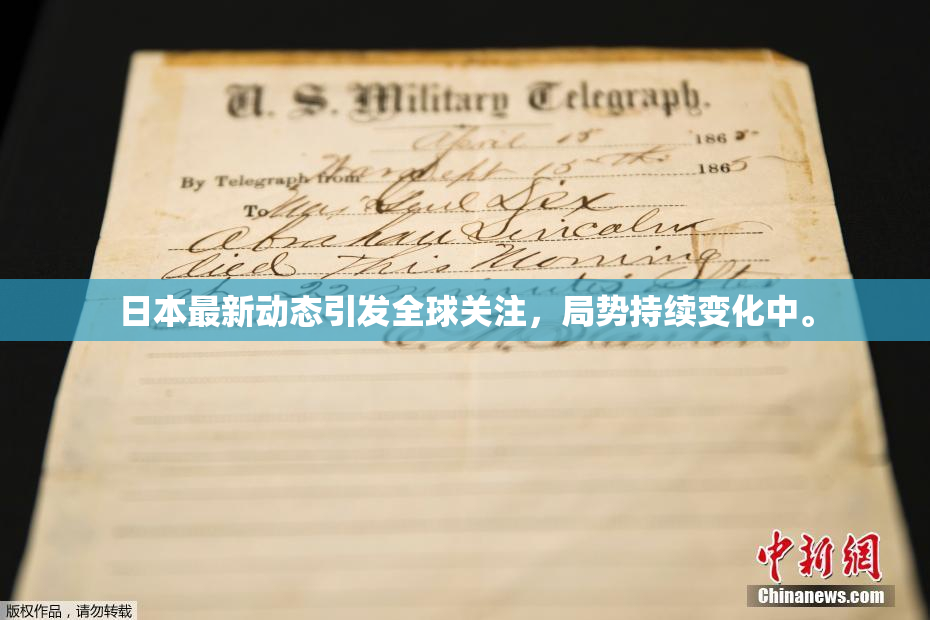 U. S. Military Telegraph.
April 15 1865
By Telegraph from War Dept 15th 1865
To Maj Genl Dix
Abraham Lincoln
died This Morning
at 22 minutes after
日本最新动态引发全球关注，局势持续变化中。
E. M. Stanton
中新網
Chinanews.com
版权作品，请勿转载